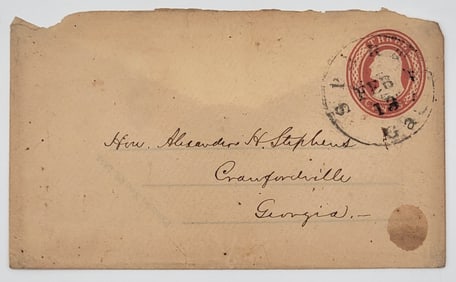 THREE
FEB
13
Ga
Hon. Alexander H. Stephens
Crawfordville
Georgia. –